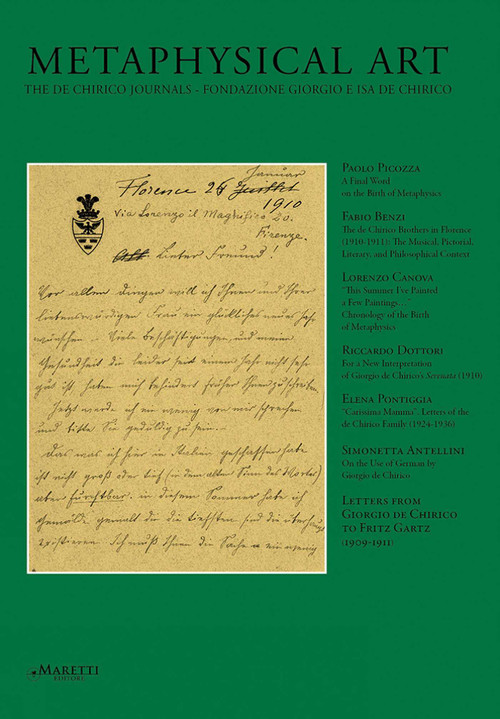 METAPHYSICAL ART
THE DE CHIRICO JOURNALS - FONDAZIONE GIORGIO E ISA DE CHIRICO
Januar
Florence 26 Juillet
1910
Via Lorenzo il Magnifico 20.
Firenze.
Lieber Freund!
Vor allen dingen will ich Ihnen und Ihrer
liebenswürdigen Frau ein glückliches neues Jahr
wünschen. Viele Beschäftigungen und meine
Gesundheit die leider seit einem Jahr nicht sehr
gut ist, haben mich behindert früher Ihnen zu schreiben.
Jetzt werde ich ein wenig von mir sprechen
und bitte Sie geduldig zu sein.-
Das was ich hier in Italien geschaffen habe
ist nicht groß oder tief (in dem alten Sinn des Wortes)
aber furchtbar. in diesem Sommer habe ich
Gemälde gemalt die die tiefsten sind die überhaupt
existieren. Ich muß Ihnen die Sache ein wenig
PAOLO PICOZZA
A Final Word
on the Birth of Metaphysics
FABIO BENZI
The de Chirico Brothers in Florence
(1910-1911): The Musical, Pictorial,
Literary, and Philosophical Context
LORENZO CANOVA
"This Summer I've Painted
a Few Paintings…"
Chronology of the Birth
of Metaphysics
RICCARDO DOTTORI
For a New Interpretation
of Giorgio de Chirico's Serenata (1910)
ELENA PONTIGGIA
"Carissima Mamma". Letters of the
de Chirico Family (1924-1936)
SIMONETTA ANTELLINI
On the Use of German by
Giorgio de Chirico
LETTERS FROM
GIORGIO DE CHIRICO
TO FRITZ GARTZ
(1909-1911)
MARETTI
EDITORE